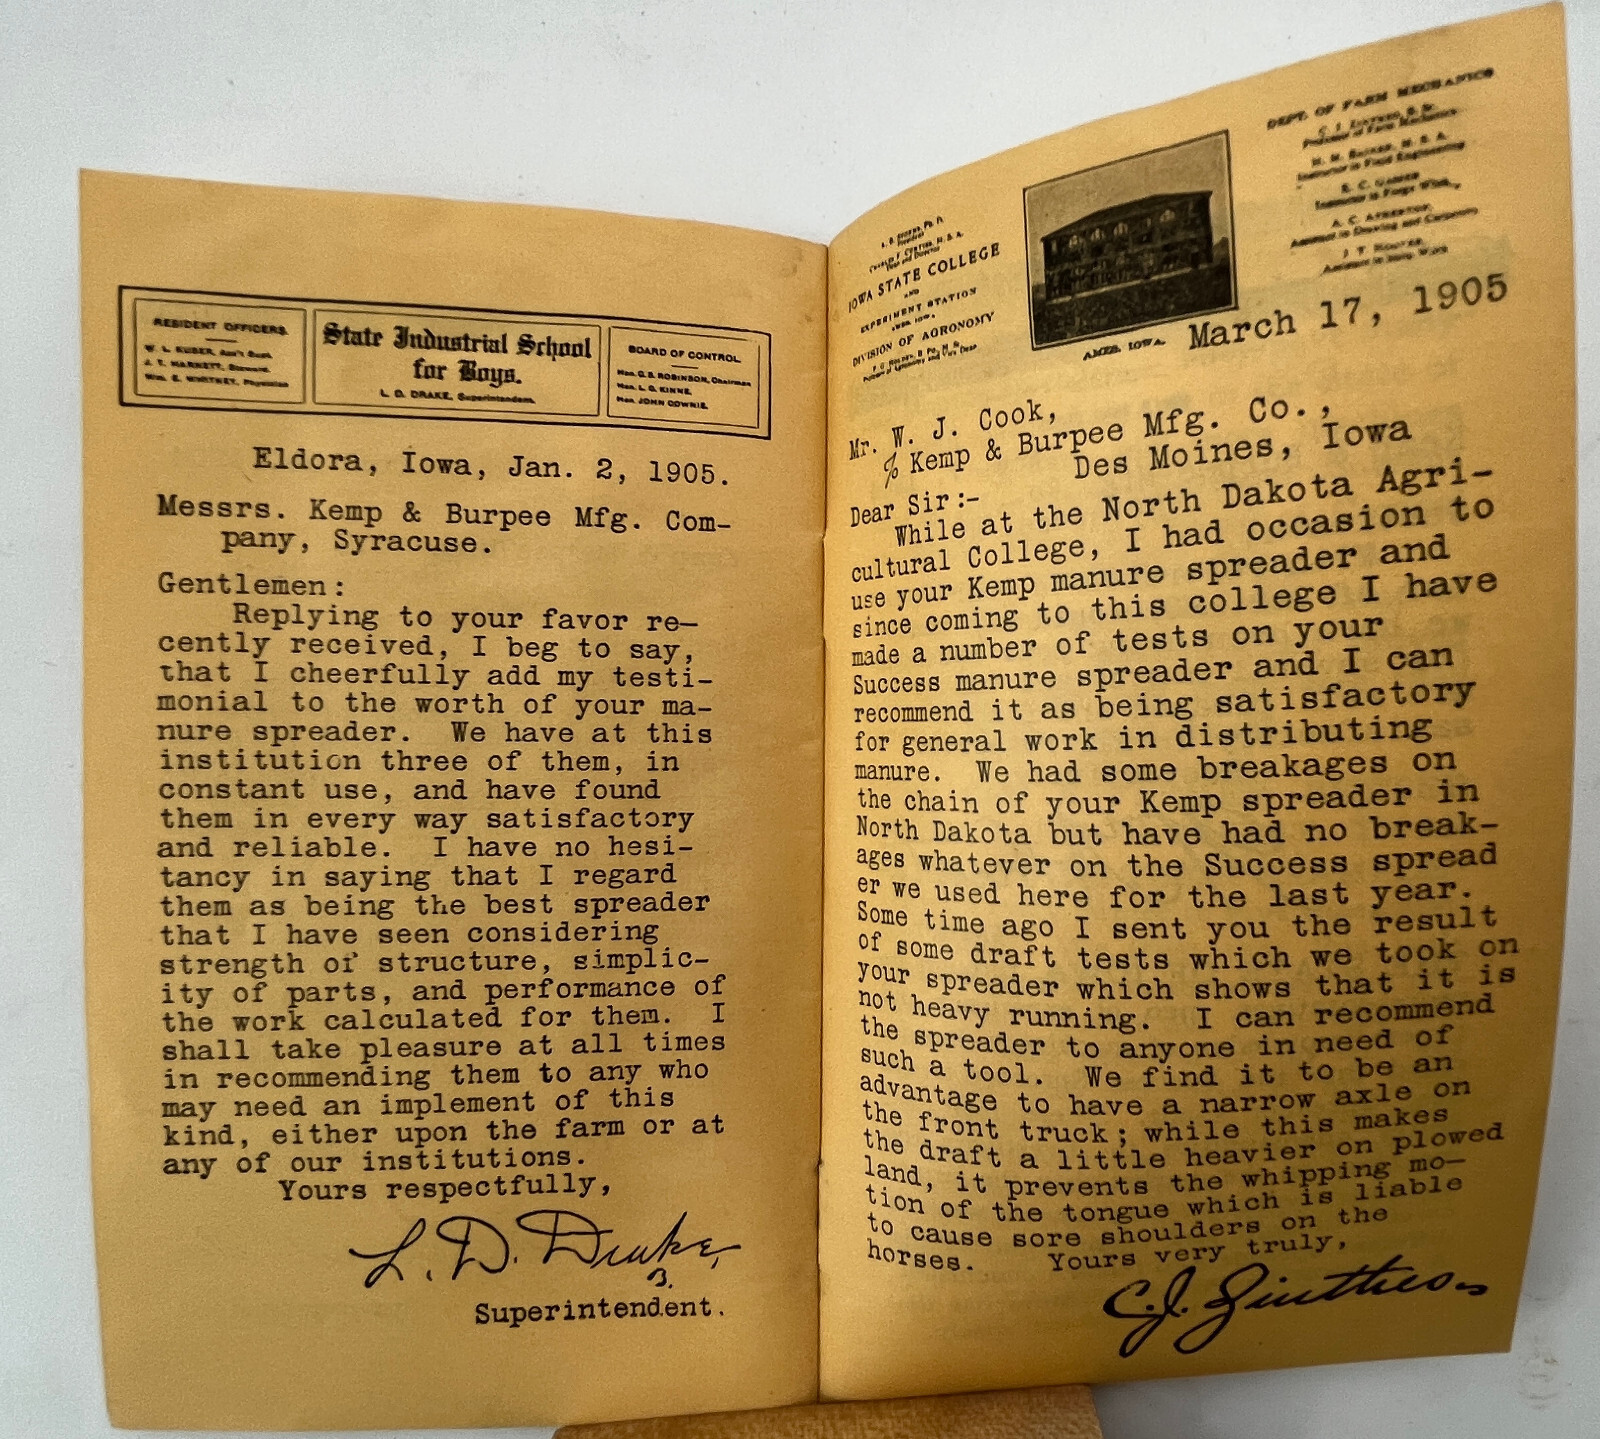 RESIDENT OFFICERS
W. L. KUSER, Ass't Supt.
J. T. HARNETT, Steward.
Wm. E. WHITNEY, Physician
State Industrial School
for Boys.
L. D. DRAKE, Superintendent.
BOARD OF CONTROL
Hon. G. S. ROBINSON, Chairman
Hon. L. G. KINNE,
Hon. JOHN COWNIE,
Eldora, Iowa, Jan. 2, 1905.
Messrs. Kemp & Burpee Mfg. Com-
pany, Syracuse.
Gentlemen:
Replying to your favor re-
cently received, I beg to say,
that I cheerfully add my testi-
monial to the worth of your ma-
nure spreader. We have at this
institution three of them, in
constant use, and have found
them in every way satisfactory
and reliable. I have no hesi-
tancy in saying that I regard
them as being the best spreader
that I have seen considering
strength of structure, simplic-
ity of parts, and performance of
the work calculated for them. I
shall take pleasure at all times
in recommending them to any who
may need an implement of this
kind, either upon the farm or at
any of our institutions.
Yours respectfully,
L. D. Drake,
B.
Superintendent.
President
Dean and Director
IOWA STATE COLLEGE
AND
EXPERIMENT STATION
AMES, IOWA.
DIVISION OF AGRONOMY
P. G. HOLDEN,
Professor of Agronomy and Vice Dean
AMES, IOWA.
DEPT. OF FARM MECHANICS
Professor of Farm Mechanics
Instructor in Field Engineering
Instructor in Forge Work
Assistant in Drawing and Carpentry
Assistant in Shop Work
March 17, 1905
Mr. W. J. Cook,
℅ Kemp & Burpee Mfg. Co.,
Des Moines, Iowa
Dear Sir:-
While at the North Dakota Agri-
cultural College, I had occasion to
use your Kemp manure spreader and
since coming to this college I have
made a number of tests on your
Success manure spreader and I can
recommend it as being satisfactory
for general work in distributing
manure. We had some breakages on
the chain of your Kemp spreader in
North Dakota but have had no break-
ages whatever on the Success spread
er we used here for the last year.
Some time ago I sent you the result
of some draft tests which we took on
your spreader which shows that it is
not heavy running. I can recommend
the spreader to anyone in need of
such a tool. We find it to be an
advantage to have a narrow axle on
the front truck; while this makes
the draft a little heavier on plowed
land, it prevents the whipping mo-
tion of the tongue which is liable
to cause sore shoulders on the
horses. Yours very truly,
C. J. Zintheo